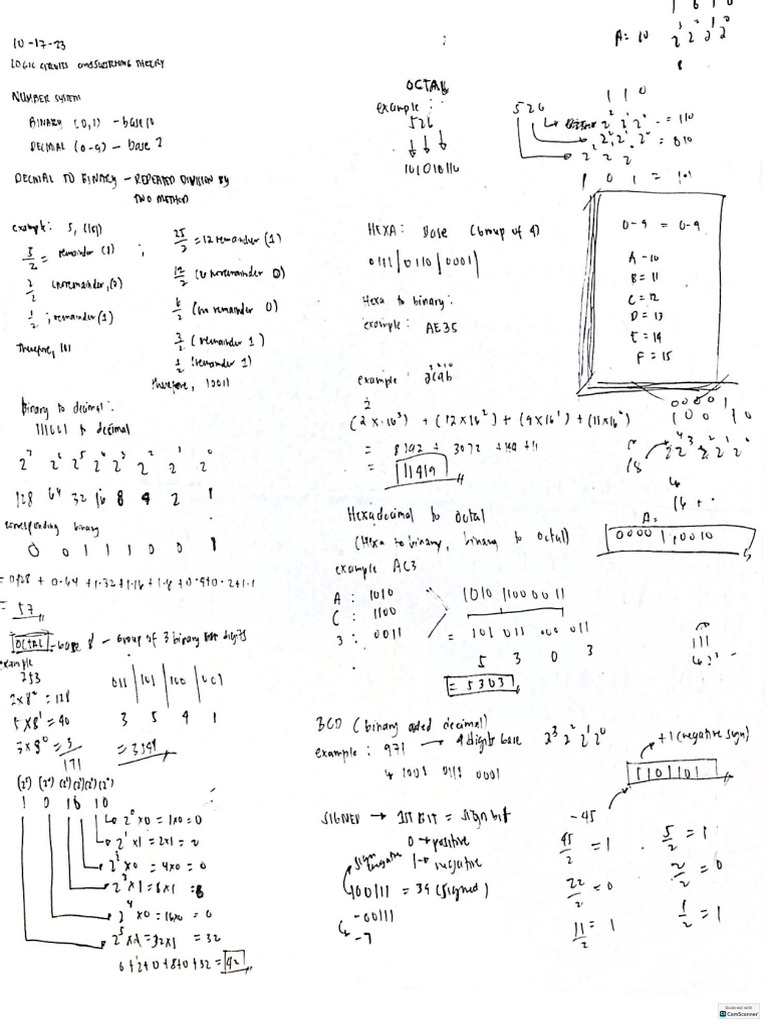 10-17-23
LOGIC CIRCUITS and SWITCHING THEORY
NUMBER SYSTEM
BINARY (0,1) - base 10
DECIMAL (0-9) - base 2
DECIMAL TO BINARY - REPEATED DIVISION BY
TWO METHOD
example: 5, (101)
5/2 = remainder (1) ;
2/2 (no remainder, 0)
1/2 ; remainder (1)
therefore, 101
25/2 = 12 remainder (1)
12/2 (no remainder 0)
6/2 (no remainder 0)
3/2 (remainder 1)
1/2 (remainder 1)
therefore, 10011
Binary to decimal:
111001 to decimal
2^7 2^6 2^5 2^4 2^3 2^2 2^1 2^0
128 64 32 16 8 4 2 1
corresponding binary
0 0 1 1 1 0 0 1
= 0·128 + 0·64 + 1·32 + 1·16 + 1·8 + 0·4 + 0·2 + 1·1
= 57
OCTAL - base 8 - Group of 3 binary digits
example
253
2x8² = 128
5x8¹ = 40
3x8⁰ = 3
171
011 | 101 | 100 | 001
3 5 4 1
= 3541
(2⁵) (2⁴) (2³) (2²) (2¹) (2⁰)
1 0 1 0 1 0
2^0 x 0 = 1x0 = 0
2^1 x 1 = 2x1 = 2
2^2 x 0 = 4x0 = 0
2^3 x 1 = 8x1 = 8
2^4 x 0 = 16x0 = 0
2^5 x 1 = 32x1 = 32
0+2+0+8+0+32 = 42
OCTAL
example:
526
101010110
526
1 1 0
2^2 2^1 2^0 = 110
2^2 2^1 2^0 = 010
2^2 2^1 2^0
1 0 1 = 101
A = 10
1 0 1 0
2^3 2^2 2^1 2^0
HEXA: Base (Group of 4)
0111 | 0110 | 0001
Hexa to binary:
example: AE35
0-9 = 0-9
A - 10
B = 11
C = 12
D = 13
E = 14
F = 15
3 2 1 0
example: 2c9b
2
(2 x 16³) + (12 x 16²) + (9 x 16¹) + (11 x 16⁰)
= 8192 + 3072 + 144 + 11
= 11419
00001
100 10
18
2^4 2^3 2^2 2^1 2^0
16 +
A =
0000 1 0010
Hexadecimal to Octal
(Hexa to binary, binary to octal)
example AC3
A : 1010
C : 1100
3 : 0011
1010 1100 0011
= 101 011 000 011
5 3 0 3
= 5303
111
BCD (binary coded decimal)
example: 971 → 4 digits base 2^3 2^2 2^1 2^0
1001 0111 0001
+1 (negative sign)
1101101
SIGNED → 1ST BIT = sign bit
0 → positive
1 → negative
sign negative
100111 = 39 (signed)
-00111
-7
-45
45/2 = 1
22/2 = 0
11/2 = 1
5/2 = 1
2/2 = 0
1/2 = 1
Scanned with
CamScanner